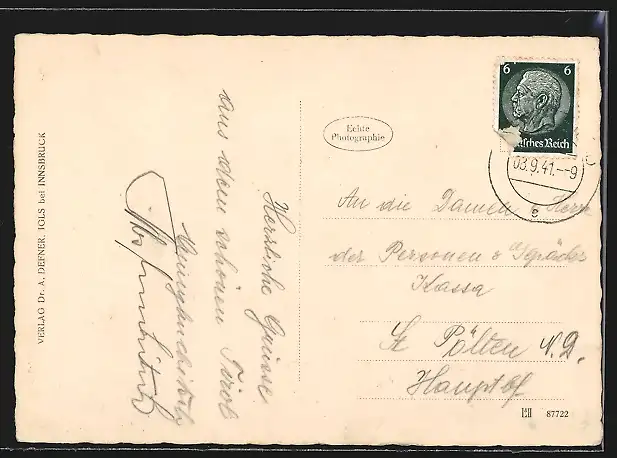 VERLAG Dr. A. DEFNER, IGLS bei INNSBRUCK
Herzliche Grüsse
aus dem schönen Tirol
Echte
Photographie
6 6
sches Reich
03.9.41.--9
e
An die Damen u Herrn
der Personen & Gepäcks
Kassa
St Pölten N.D.
Hauptbf
87722